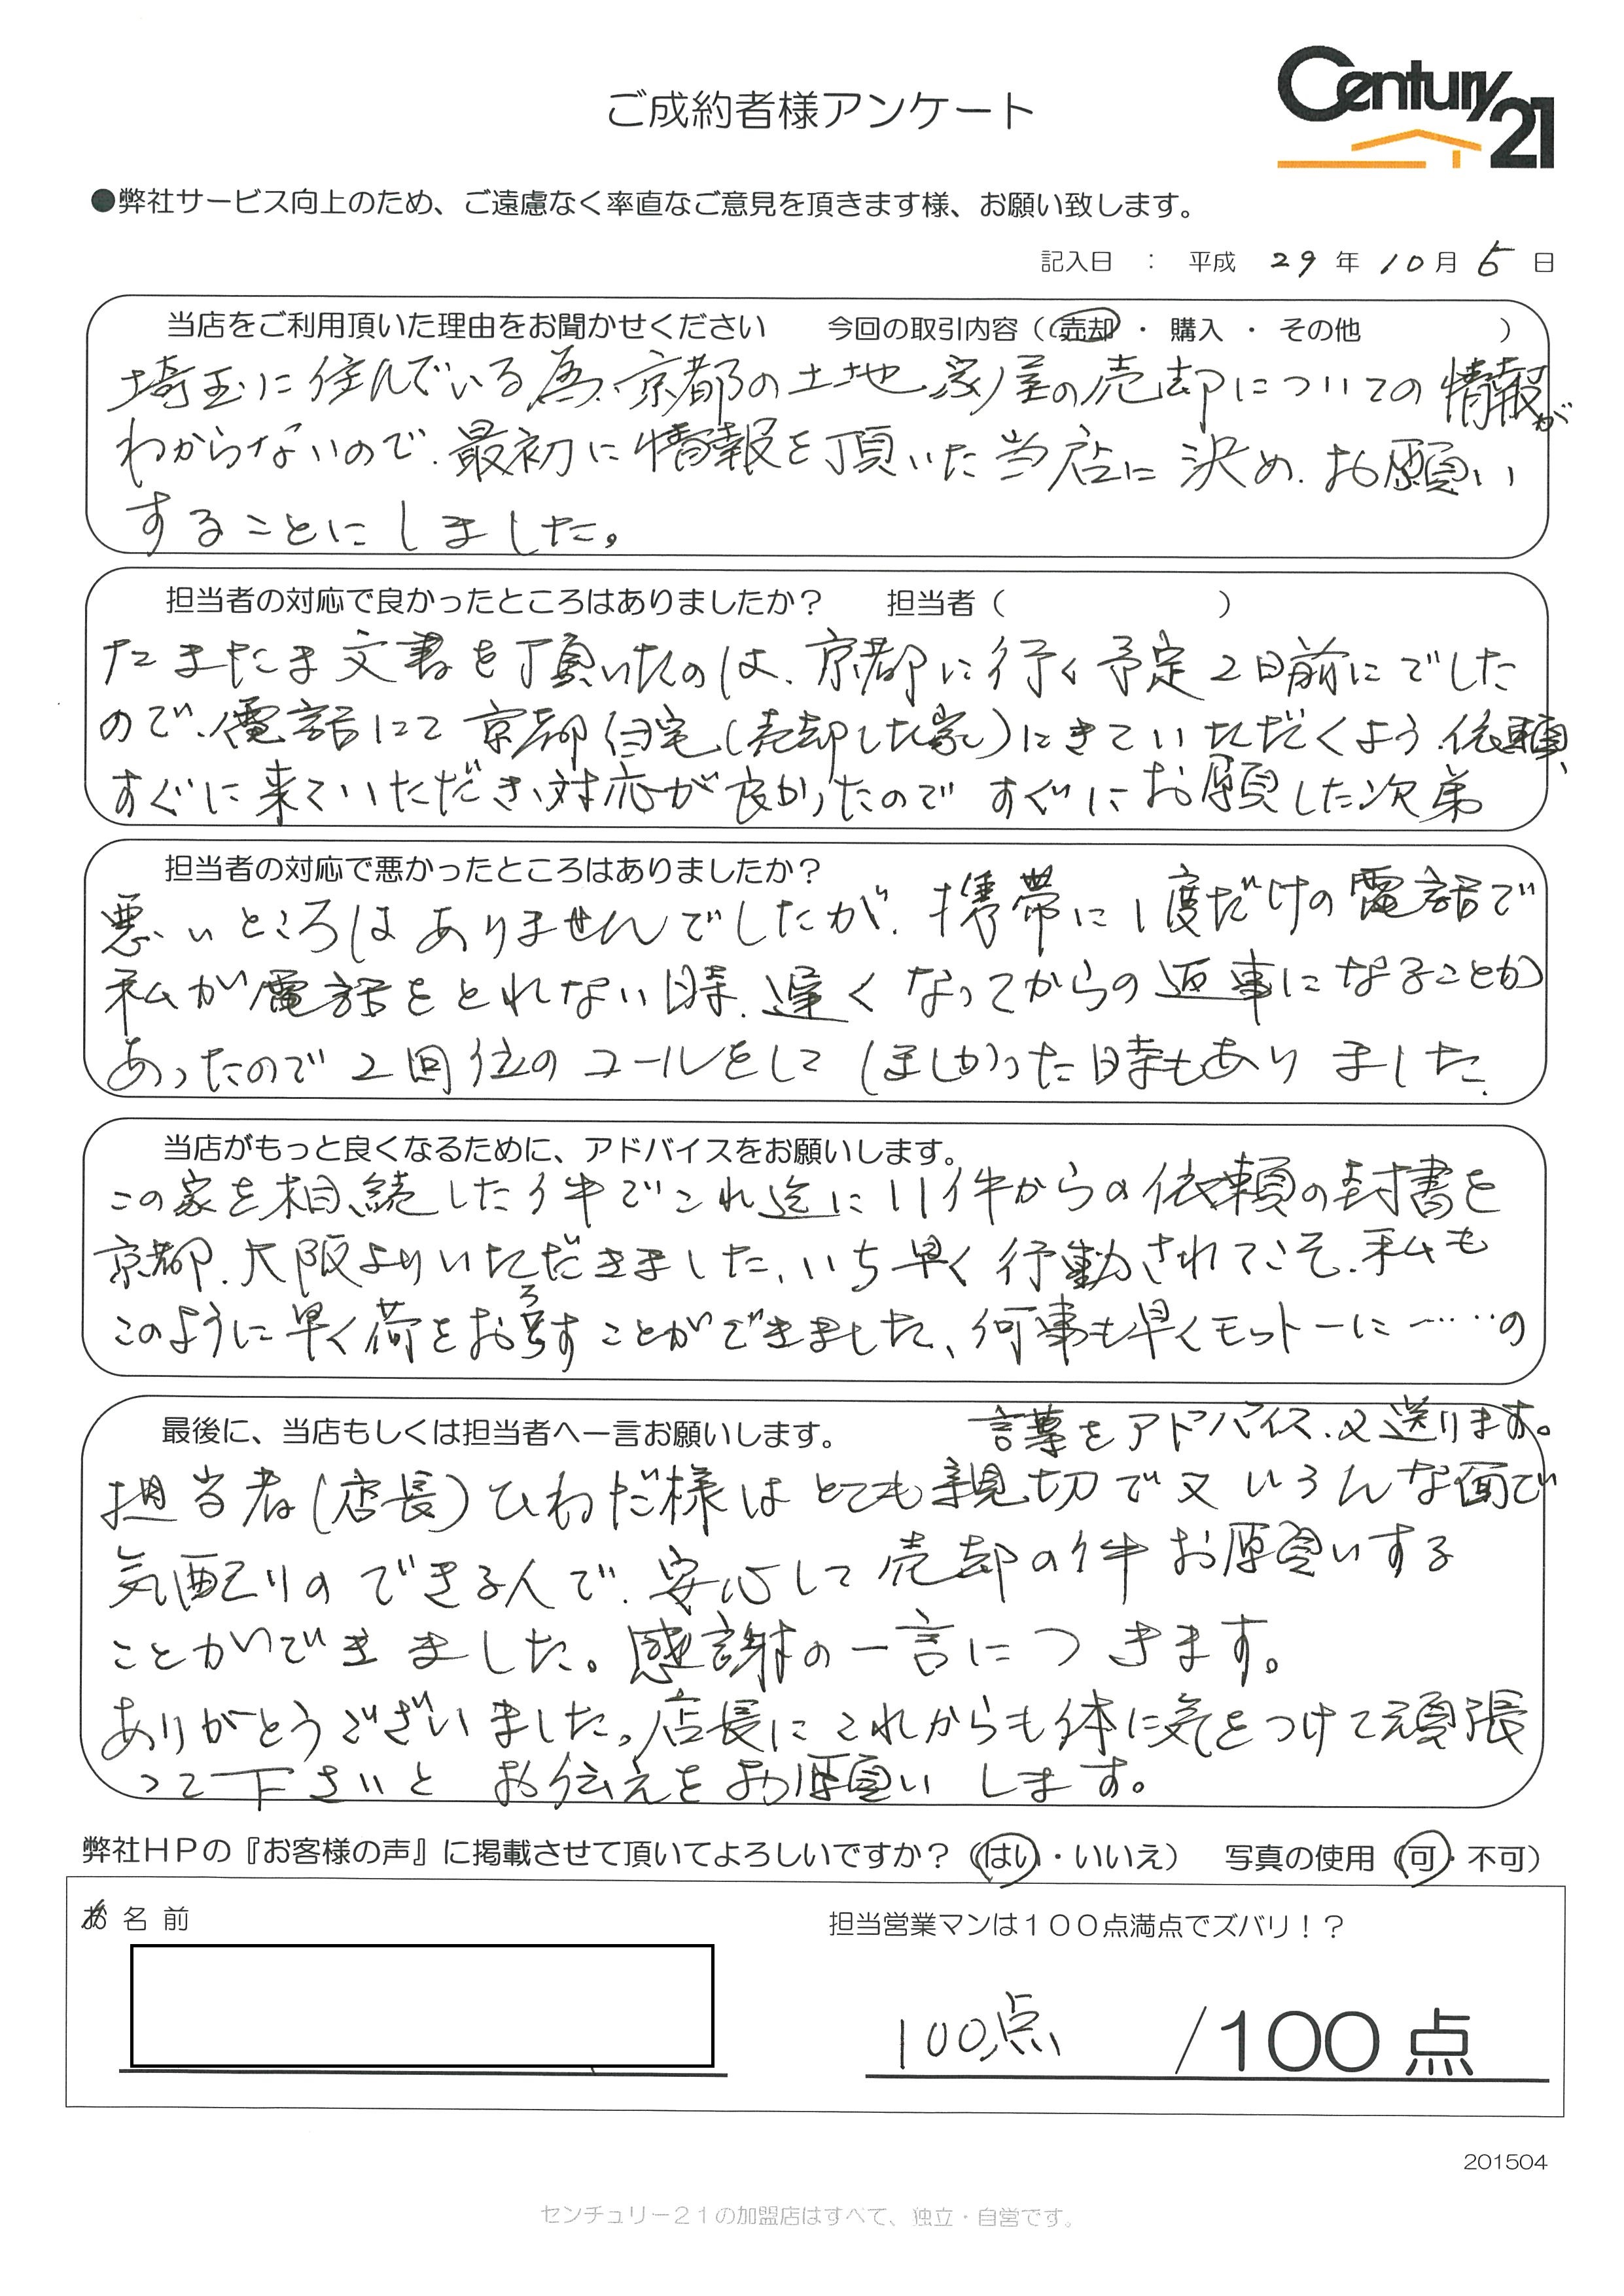 ご成約者様アンケート
Century 21
●弊社サービス向上のため、ご遠慮なく率直なご意見を頂きます様、お願い致します。
記入日 : 平成 29 年 10 月 5 日
当店をご利用頂いた理由をお聞かせください 今回の取引内容(売却・購入・その他 )
埼玉に住んでいる為、京都の土地、家屋の売却についての情報が
わからないので、最初に情報を頂いた当店に決め、お願い
することにしました。
担当者の対応で良かったところはありましたか? 担当者( )
たまたま文書を頂いたのは、京都に行く予定2日前にでした
ので、電話にて京都住宅(売却した家)にきていただくよう、依頼、
すぐに来ていただき、対応が良かったのですぐにお願した次第
担当者の対応で悪かったところはありましたか?
悪いところはありませんでしたが、携帯に1度だけの電話で
私が電話をとれない時、遅くなってからの返事になることが
あったので2回位のコールをしてほしかった時もありました。
当店がもっと良くなるために、アドバイスをお願いします。
この家を相続した件でこれ迄に11件からの依頼の封書を
京都、大阪よりいただきました、いち早く行動されてこそ、私も
このように早く荷をおろすことができました、何事も早くモットーに……の
言葉をアドバイス、又送ります。
最後に、当店もしくは担当者へ一言お願いします。
担当者(店長)ひわだ様はとても親切で又いろんな面で
気配りのできる人で、安心して売却の件お願いする
ことができました。感謝の一言につきます。
ありがとうございました。店長にこれからも体に気をつけて頑張
って下さいとお伝えをお願いします。
弊社HPの『お客様の声』に掲載させて頂いてよろしいですか?(はい・いいえ) 写真の使用(可・不可)
お名前
担当営業マンは100点満点でズバリ!?
100点 /100点
201504
センチュリー21の加盟店はすべて、独立・自営です。